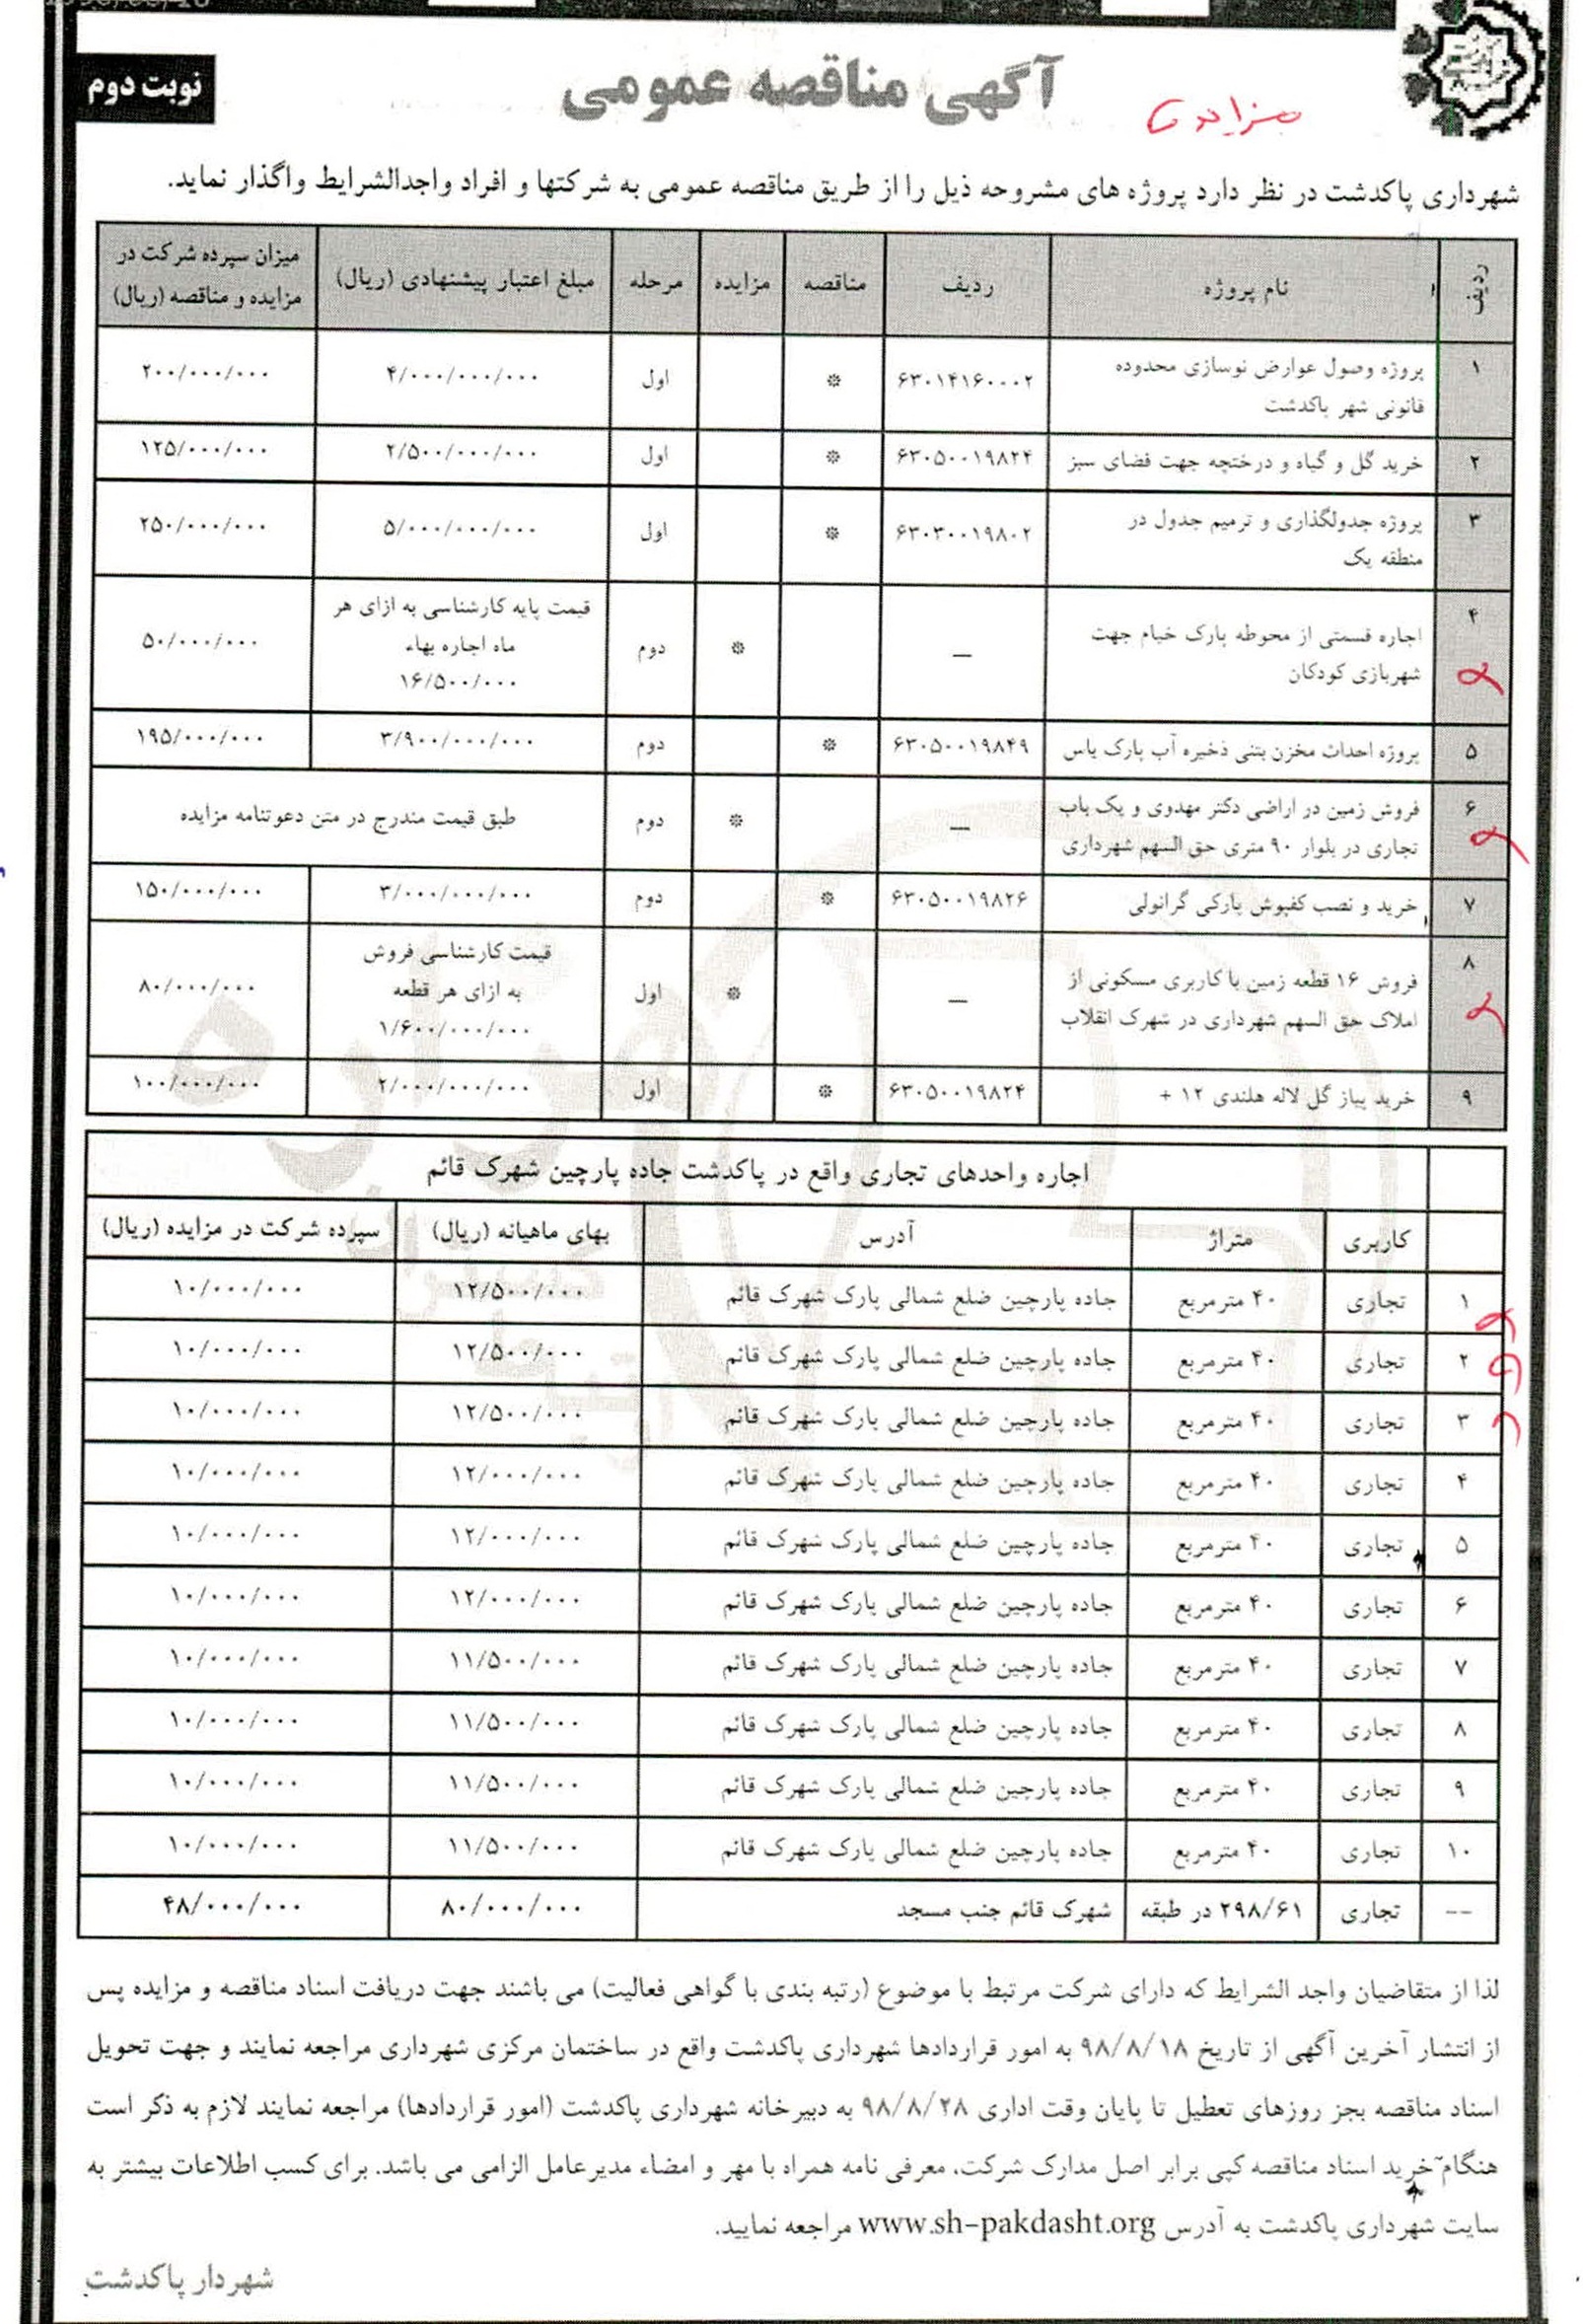 آگهی مناقصه عمومی
مزایده
نوبت دوم
شهرداری پاکدشت در نظر دارد پروژه های مشروحه ذیل را از طریق مناقصه عمومی به شرکتها و افراد واجدالشرایط واگذار نماید.
ردیف نام پروژه ردیف مناقصه مزایده مرحله مبلغ اعتبار پیشنهادی (ریال) میزان سپرده شرکت در
مزایده و مناقصه (ریال)
۱ پروژه وصول عوارض نوسازی محدوده
قانونی شهر پاکدشت ۶۳۰۱۴۱۶۰۰۰۲ * اول ۴/۰۰۰/۰۰۰/۰۰۰ ۲۰۰/۰۰۰/۰۰۰
۲ خرید گل و گیاه و درختچه جهت فضای سبز ۶۳۰۵۰۰۱۹۸۲۴ * اول ۲/۵۰۰/۰۰۰/۰۰۰ ۱۲۵/۰۰۰/۰۰۰
۳ پروژه جدولگذاری و ترمیم جدول در
منطقه یک ۶۳۰۳۰۰۱۹۸۰۲ * اول ۵/۰۰۰/۰۰۰/۰۰۰ ۲۵۰/۰۰۰/۰۰۰
۴ اجاره قسمتی از محوطه پارک خیام جهت
شهربازی کودکان — * دوم قیمت پایه کارشناسی به ازای هر
ماه اجاره بهاء
۱۶/۵۰۰/۰۰۰ ۵۰/۰۰۰/۰۰۰
۵ پروژه احداث مخزن بتنی ذخیره آب پارک یاس ۶۳۰۵۰۰۱۹۸۴۹ * دوم ۳/۹۰۰/۰۰۰/۰۰۰ ۱۹۵/۰۰۰/۰۰۰
۶ فروش زمین در اراضی دکتر مهدوی و یک باب
تجاری در بلوار ۹۰ متری حق السهم شهرداری — * دوم طبق قیمت مندرج در متن دعوتنامه مزایده
۷ خرید و نصب کفپوش پارکی گرانولی ۶۳۰۵۰۰۱۹۸۲۶ * دوم ۳/۰۰۰/۰۰۰/۰۰۰ ۱۵۰/۰۰۰/۰۰۰
۸ فروش ۱۶ قطعه زمین با کاربری مسکونی از
املاک حق السهم شهرداری در شهرک انقلاب — * اول قیمت کارشناسی فروش
به ازای هر قطعه
۱/۶۰۰/۰۰۰/۰۰۰ ۸۰/۰۰۰/۰۰۰
۹ خرید پیاز گل لاله هلندی ۱۲ + ۶۳۰۵۰۰۱۹۸۲۴ * اول ۲/۰۰۰/۰۰۰/۰۰۰ ۱۰۰/۰۰۰/۰۰۰
اجاره واحدهای تجاری واقع در پاکدشت جاده پارچین شهرک قائم
کاربری متراژ آدرس بهای ماهیانه (ریال) سپرده شرکت در مزایده (ریال)
۱ تجاری ۴۰ مترمربع جاده پارچین ضلع شمالی پارک شهرک قائم ۱۲/۵۰۰/۰۰۰ ۱۰/۰۰۰/۰۰۰
۲ تجاری ۴۰ مترمربع جاده پارچین ضلع شمالی پارک شهرک قائم ۱۲/۵۰۰/۰۰۰ ۱۰/۰۰۰/۰۰۰
۳ تجاری ۴۰ مترمربع جاده پارچین ضلع شمالی پارک شهرک قائم ۱۲/۵۰۰/۰۰۰ ۱۰/۰۰۰/۰۰۰
۴ تجاری ۴۰ مترمربع جاده پارچین ضلع شمالی پارک شهرک قائم ۱۲/۰۰۰/۰۰۰ ۱۰/۰۰۰/۰۰۰
۵ تجاری ۴۰ مترمربع جاده پارچین ضلع شمالی پارک شهرک قائم ۱۲/۰۰۰/۰۰۰ ۱۰/۰۰۰/۰۰۰
۶ تجاری ۴۰ مترمربع جاده پارچین ضلع شمالی پارک شهرک قائم ۱۲/۰۰۰/۰۰۰ ۱۰/۰۰۰/۰۰۰
۷ تجاری ۴۰ مترمربع جاده پارچین ضلع شمالی پارک شهرک قائم ۱۱/۵۰۰/۰۰۰ ۱۰/۰۰۰/۰۰۰
۸ تجاری ۴۰ مترمربع جاده پارچین ضلع شمالی پارک شهرک قائم ۱۱/۵۰۰/۰۰۰ ۱۰/۰۰۰/۰۰۰
۹ تجاری ۴۰ مترمربع جاده پارچین ضلع شمالی پارک شهرک قائم ۱۱/۵۰۰/۰۰۰ ۱۰/۰۰۰/۰۰۰
۱۰ تجاری ۴۰ مترمربع جاده پارچین ضلع شمالی پارک شهرک قائم ۱۱/۵۰۰/۰۰۰ ۱۰/۰۰۰/۰۰۰
-- تجاری ۲۹۸/۶۱ در طبقه شهرک قائم جنب مسجد ۸۰/۰۰۰/۰۰۰ ۴۸/۰۰۰/۰۰۰
لذا از متقاضیان واجد الشرایط که دارای شرکت مرتبط با موضوع (رتبه بندی با گواهی فعالیت) می باشند جهت دریافت اسناد مناقصه و مزایده پس
از انتشار آخرین آگهی از تاریخ ۹۸/۸/۱۸ به امور قراردادها شهرداری پاکدشت واقع در ساختمان مرکزی شهرداری مراجعه نمایند و جهت تحویل
اسناد مناقصه بجز روزهای تعطیل تا پایان وقت اداری ۹۸/۸/۲۸ به دبیرخانه شهرداری پاکدشت (امور قراردادها) مراجعه نمایند لازم به ذکر است
هنگام خرید اسناد مناقصه کپی برابر اصل مدارک شرکت، معرفی نامه همراه با مهر و امضاء مدیرعامل الزامی می باشد. برای کسب اطلاعات بیشتر به
سایت شهرداری پاکدشت به آدرس www.sh-pakdasht.org مراجعه نمایید.
شهردار پاکدشت